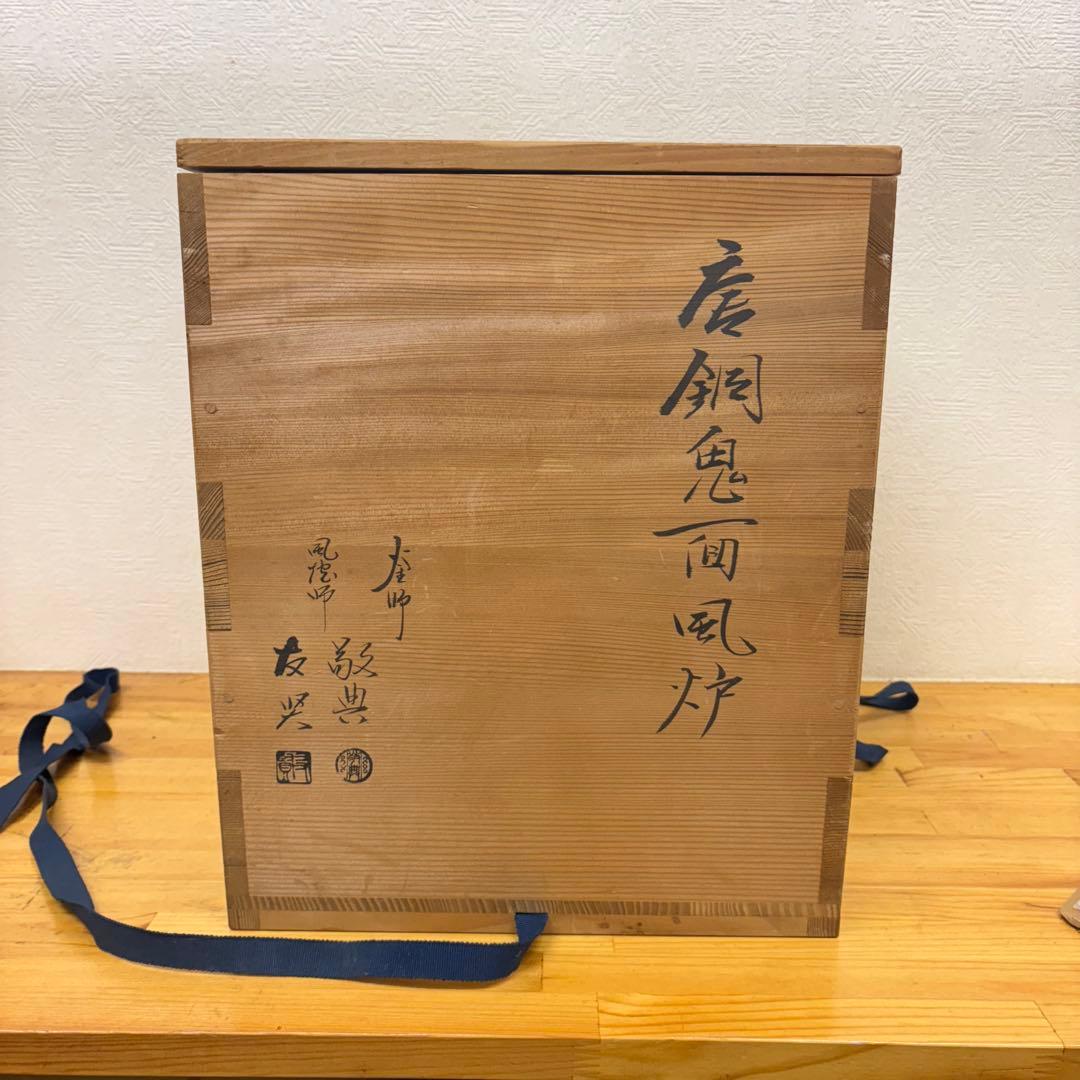 唐銅鬼面風炉
釜師 敬典
風炉師 友賢